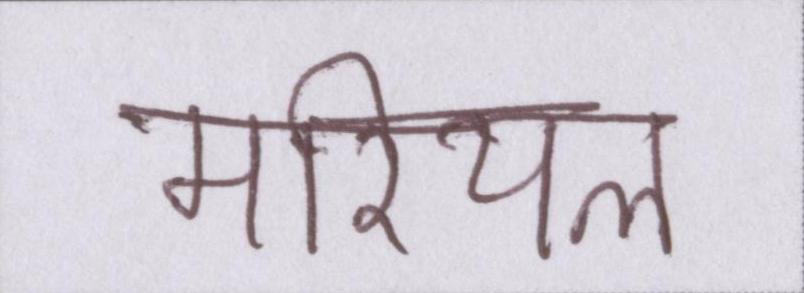 मरियल